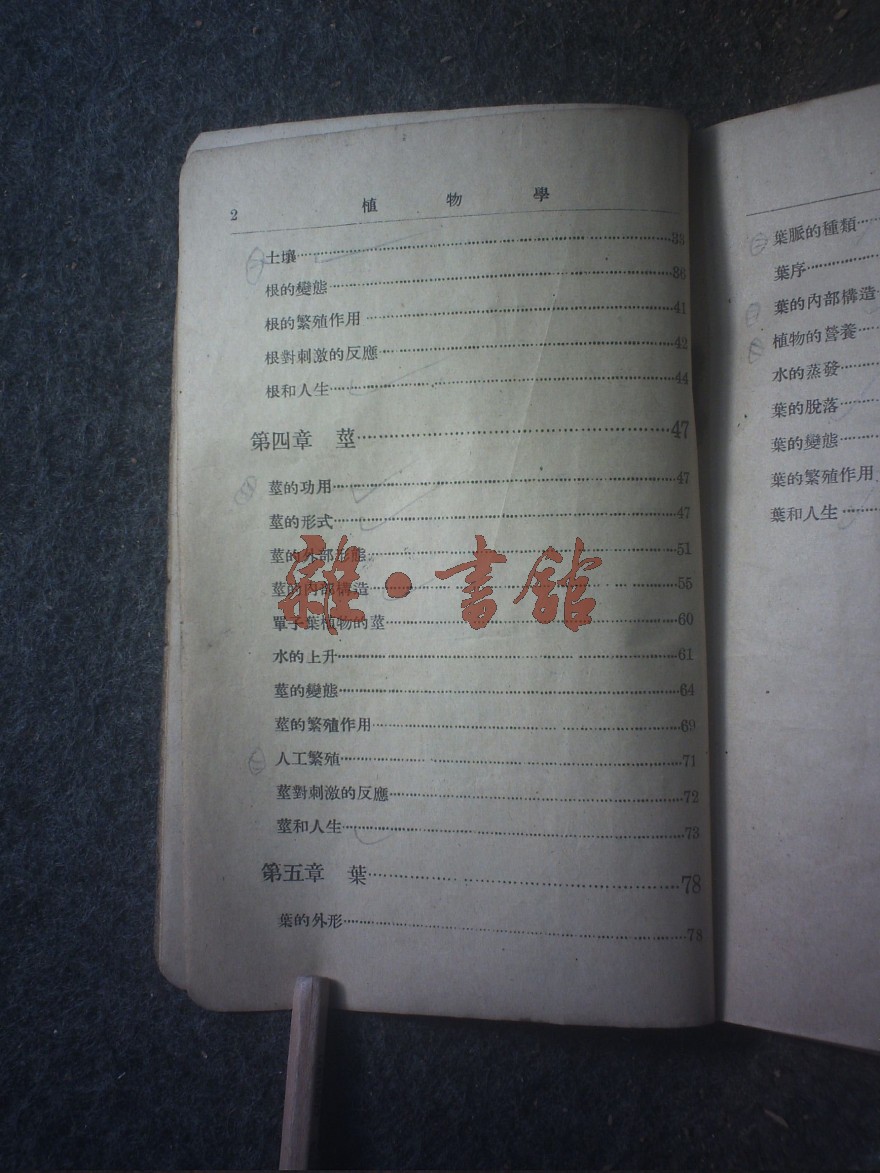 2 植物學
土壤 33
根的變態 36
根的繁殖作用 41
根對刺激的反應 42
根和人生 44
第四章 莖 47
莖的功用 47
莖的形式 47
莖的外部形態 51
莖的內部構造 55
單子葉植物的莖 60
水的上升 61
莖的變態 64
莖的繁殖作用 69
人工繁殖 71
莖對刺激的反應 72
莖和人生 73
第五章 葉 78
葉的外形 78
雜·書館
葉脈的種類
葉序
葉的內部構造
植物的營養
水的蒸發
葉的脫落
葉的變態
葉的繁殖作用
葉和人生